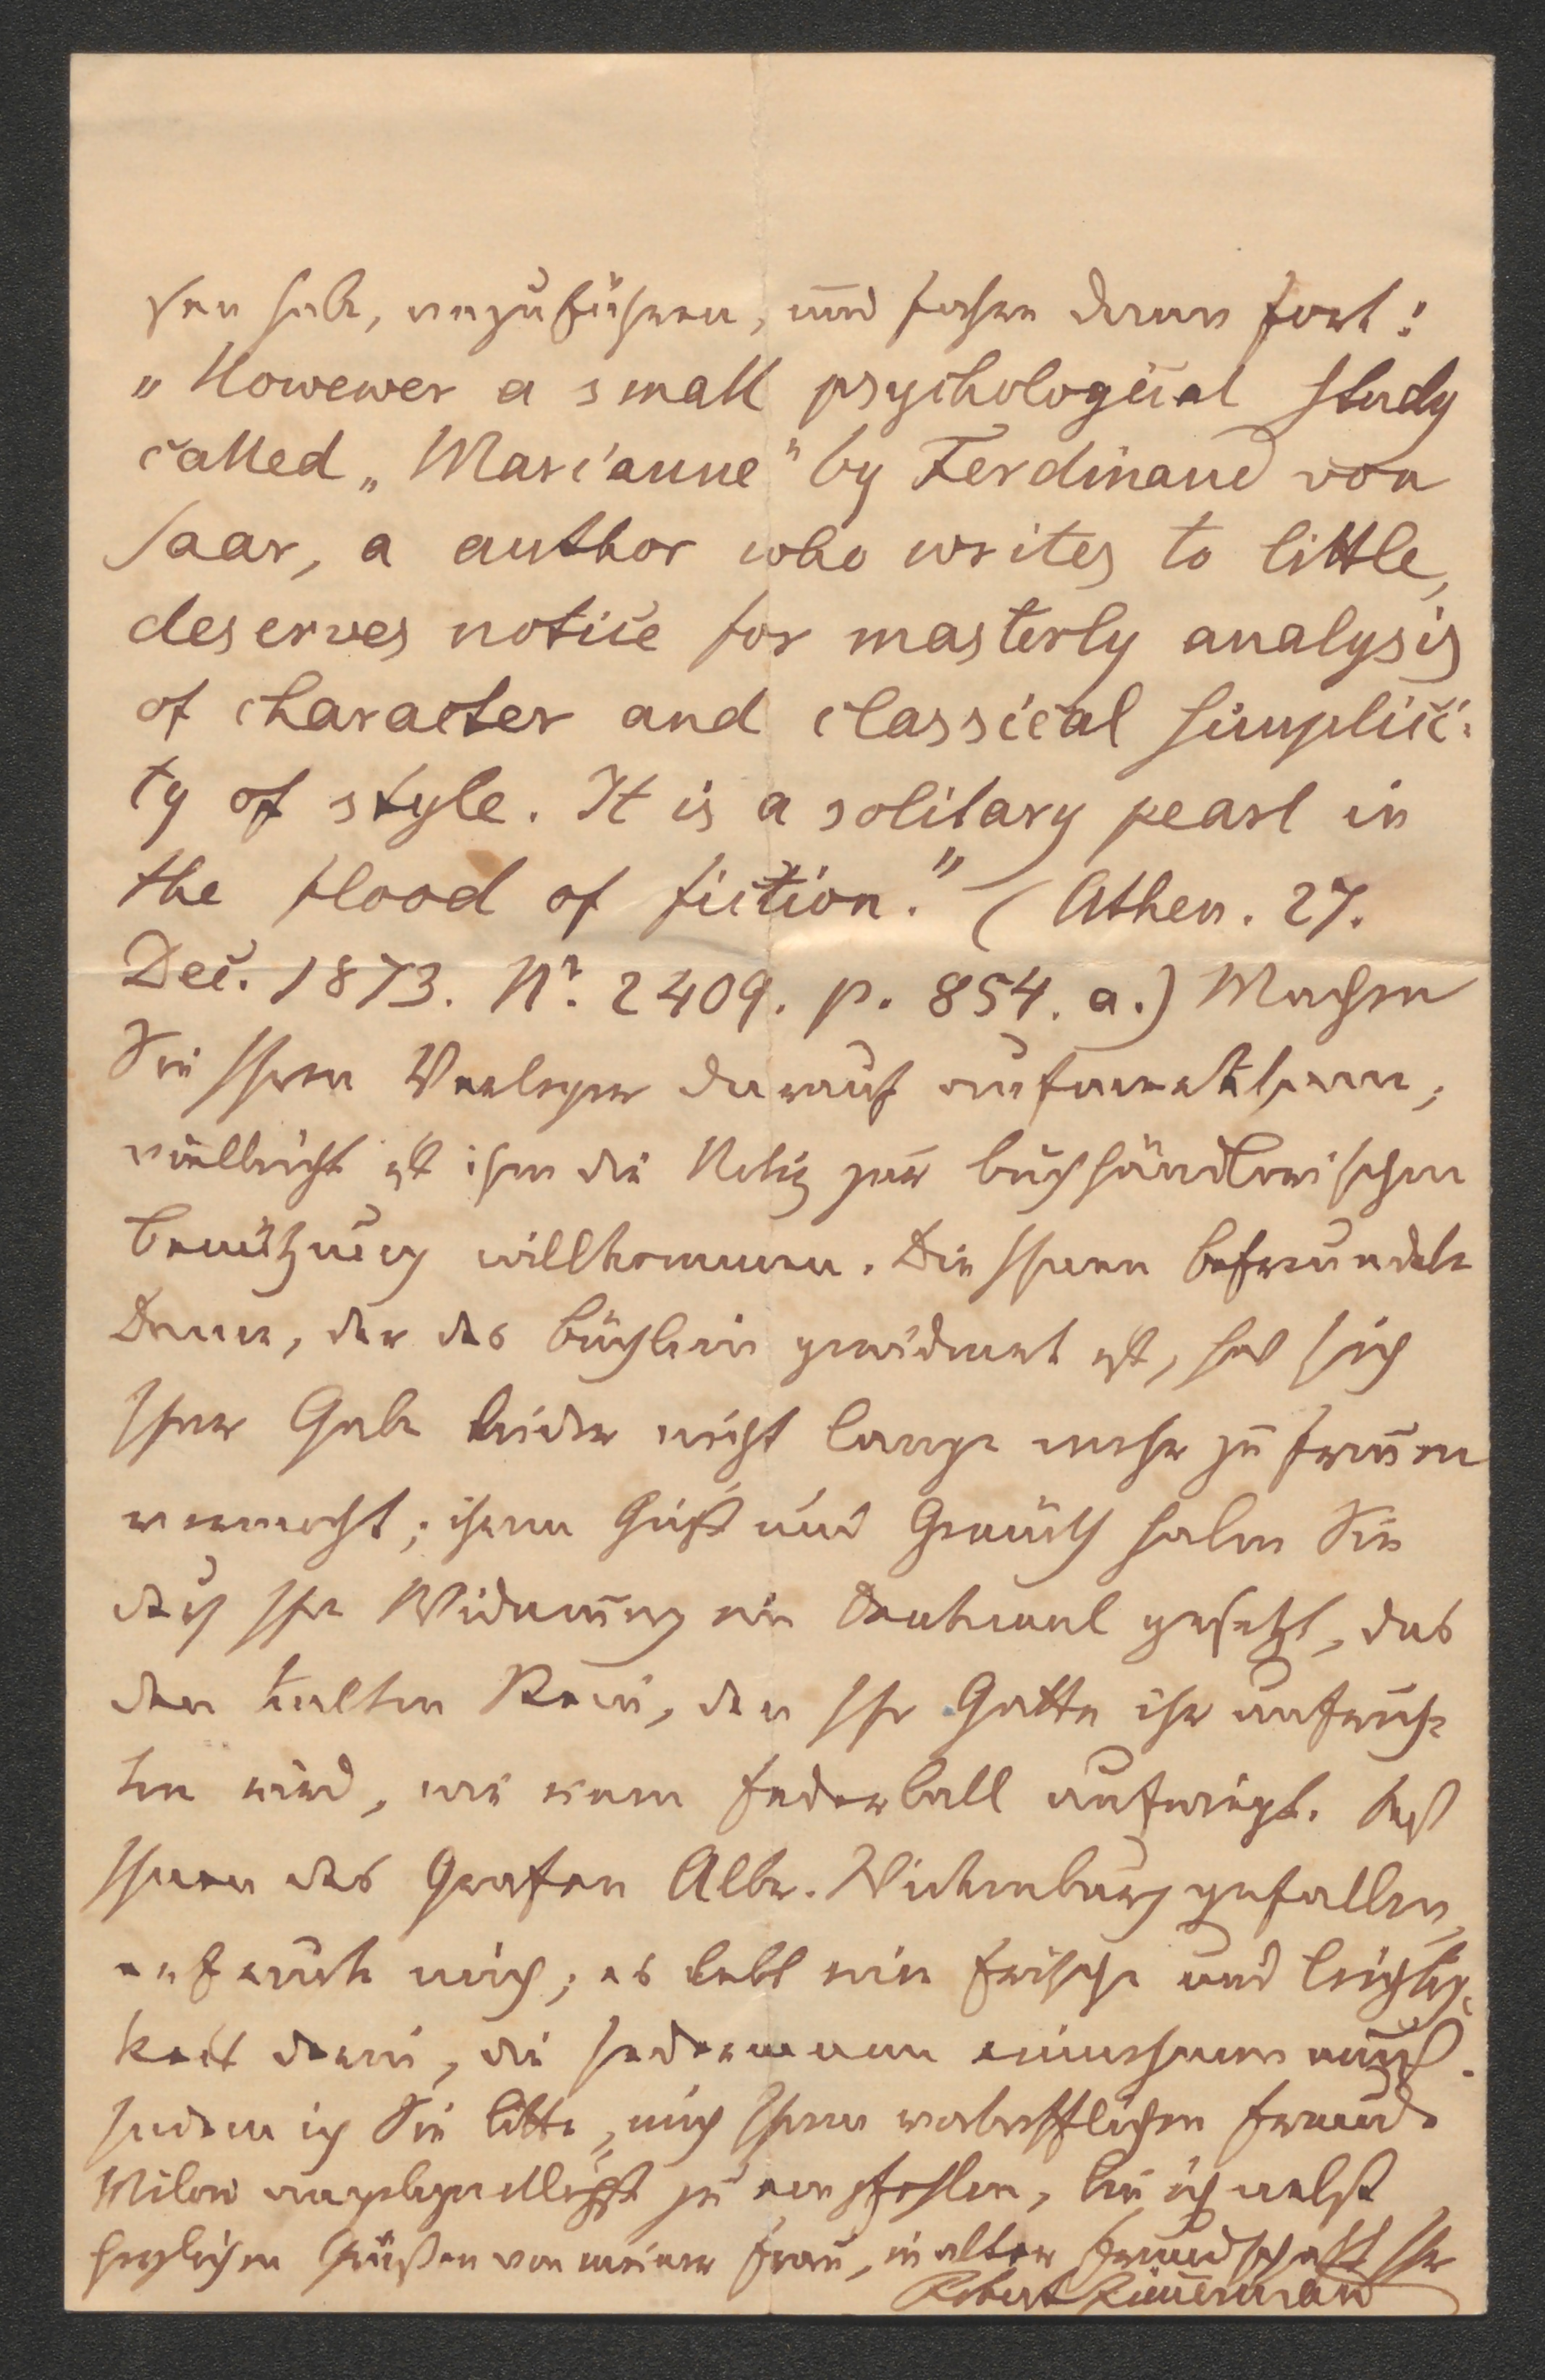 sen habe, anzuführen, und fahre dann fort:
„Howewer a small psychological study
called „Marianne" by Ferdinand von
Saar, a author who writes to little,
deserves notice for masterly analysis
of character and classical simplici-
ty of style. It is a solitary pearl in
the flood of fiction." (Athen. 27.
Dec. 1873. Nr. 2409. p. 854. a.) Machen
Sie Ihren Verleger darauf aufmerksam;
vielleicht ist ihm die Notiz zur buchhändlerischen
Benützung willkommen. Die Ihnen befreundete
Dame, der das Büchlein gewidmet ist, hat sich
Ihrer Gabe leider nicht lange mehr zu freuen
vermocht; ihrem Geist und Gemüth haben Sie
durch Ihre Widmung ein Denkmal gesetzt, das
den kalten Stein, den Ihr Gatte ihr aufrich-
ten wird, wie einen Federball aufwiegt. Daß
Ihnen das Grafen Albr. Wickenburg gefallen,
erfreute mich; es lebt eine Frische und Leichtig-
keit darin, die Jedermann einnehmen muß.
Indem ich Sie bitte, mich Ihrem vortrefflichen Freunde
Milow angelegentlichst zu empfehlen, bin ich nebst
herzlichen Grüßen von meiner Frau, in alter Freundschaft Ihr
Robert Zimmermann